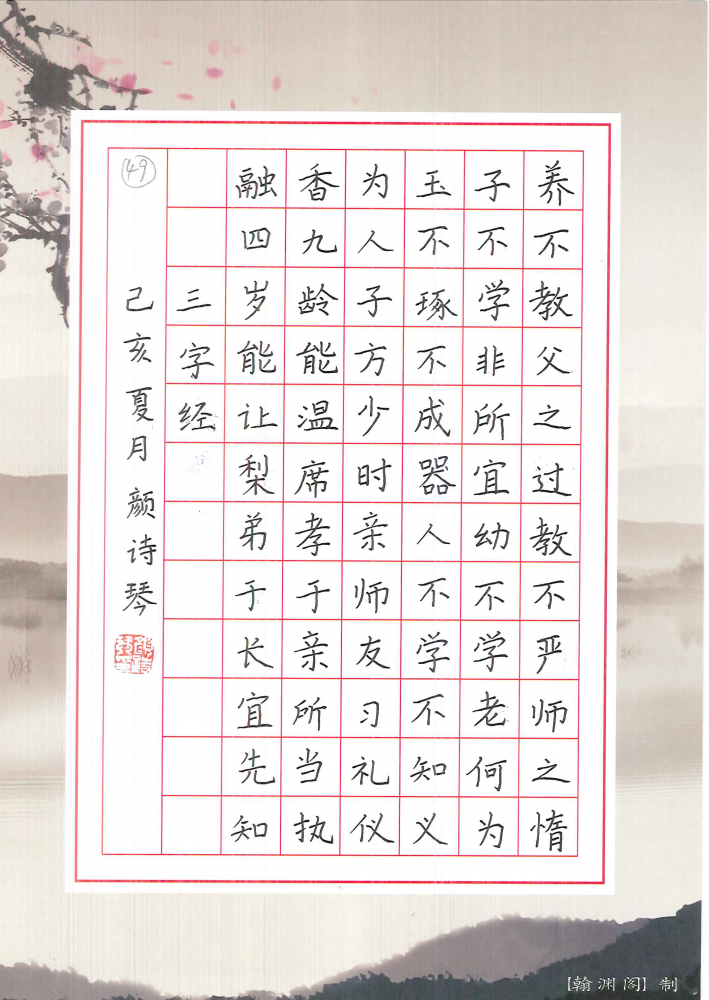 养不教父之过教不严师之惰
子不学非所宜幼不学老何为
玉不琢不成器人不学不知义
为人子方少时亲师友习礼仪
香九龄能温席孝于亲所当执
融四岁能让梨弟于长宜先知
三字经
己亥夏月颜诗琴
49
【翰渊阁】制